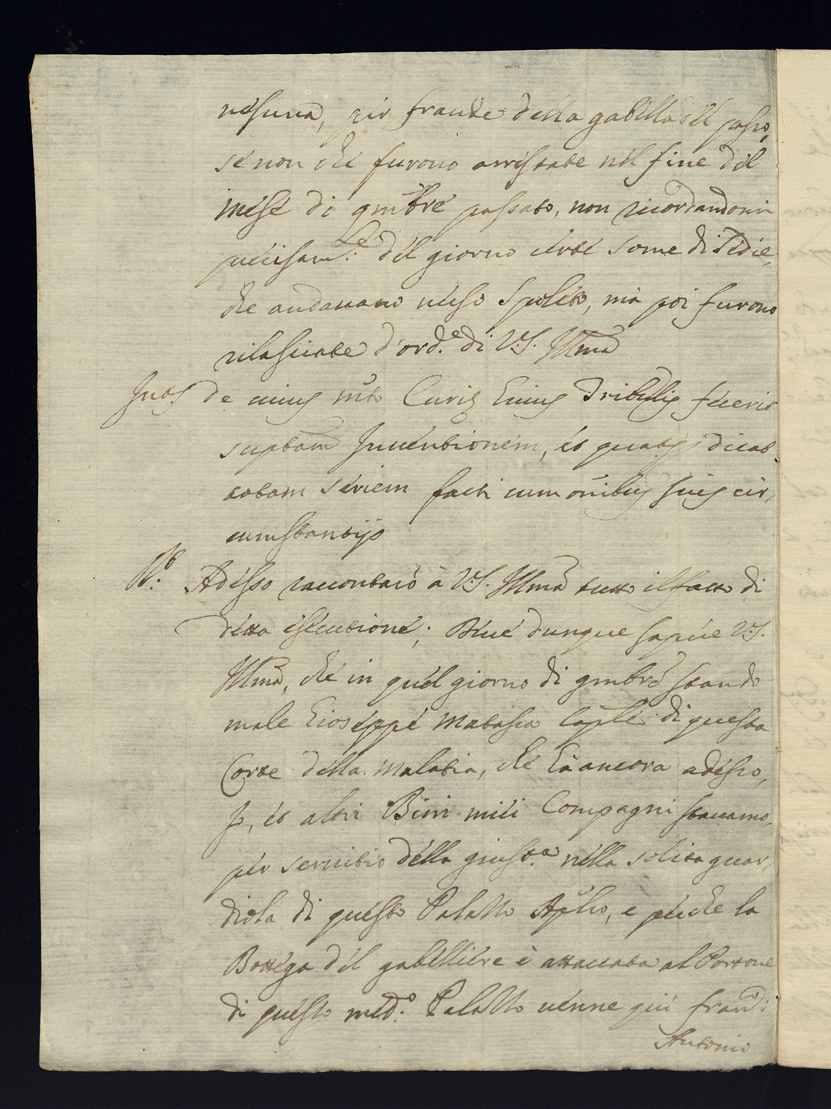 nesuna, per fraude della gabella del passo,
se non che furono arrestate nel fine del
mese di 9mbre passato, non ricordandomi
precisam.te del giorno certe some di Pelle,
che andavano verso Spoleto, ma poi furono
rilasciate d'ord.e di V.S. Ill.ma
Int.s de cuius m.to Curiæ Cuius Tribulis fecerit
supttam Inventionem, et quatus dicat
totam seriem facti cum omnibus suis cir,
cumstantijs
R.t Adesso raccontarò à V.S. Ill.ma tutto il fatto di
detta esecutione; Deve dunque sapere V.S.
Ill.ma, che in quel giorno di 9mbre stando
male Gioseppe Matasia Cap.le di questa
Corte della malatia, che hà ancora adesso,
Io, et altri Birri miei Compagni stavamo
per servitio della giust.a nella solita guar,
diola di questo Palazzo Ap.lico, e perche la
Bottega del gabelliere è attaccata al Portone
di questo med.o Palazzo venne qui Fran.co
Antonio